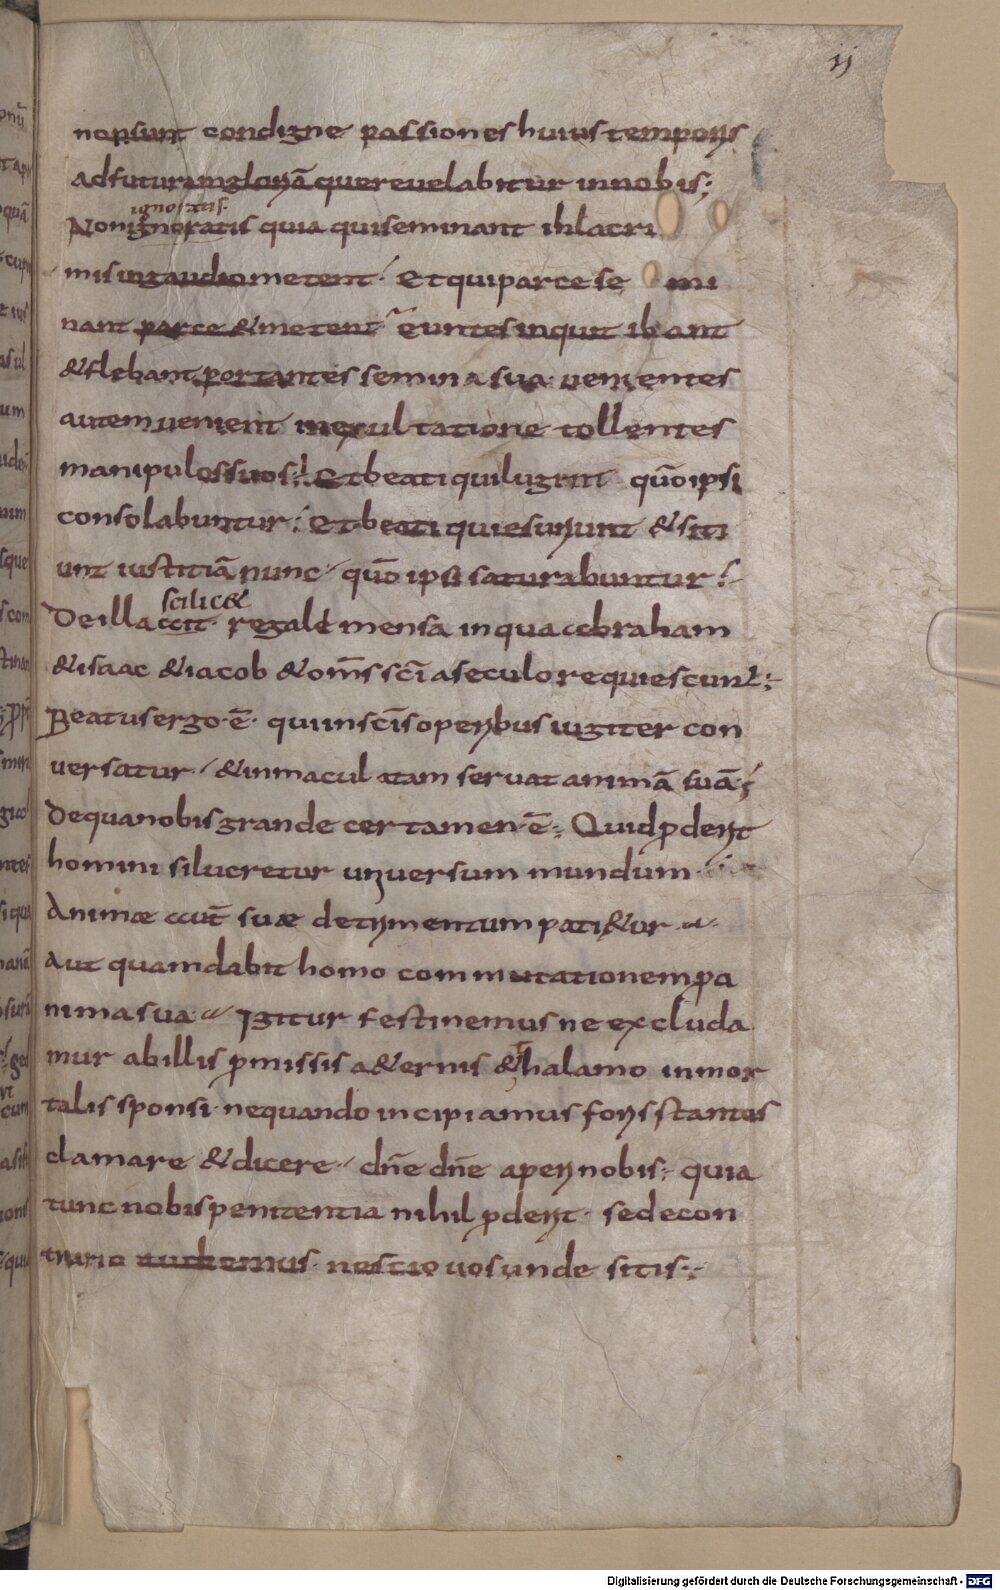 ij
non sunt condigne passiones huius temporis
ad futuram gloriã que revelabitur in nobis;
ignoratis
Non ignoratis quia qui seminant in lacri
mis in gaudio metent. Et qui parce semi
nant parce & metent. euntes inquit ibant
& flebant portantes semina sua. venientes
autem venient in exultatione tollentes
manipulos suos; Et beati qui lugent quõ ipsi
consolabuntur; Et beati qui esuriunt & siti
unt iustitiã nunc. quõ ipsi saturabuntur;
scilic&
De illa regale mensa in qua abraham
& isaac & iacob & om̃s sc̃i a seculo requiescunt;
Beatus ergo ẽ. qui in sc̃is operibus iugiter con
versatur, & inmaculatam servat animã suã;
De qua nobis grande certamen ẽ; Quid ꝓderit
homini si lucretur universum mundum
Animæ aut̃ suæ detrimentum pati&ur
Aut quam dabit homo commutationem ꝓ a
nima sua. Igitur festinemus ne excluda
mur ab illis ꝓmissis a&ernis & thalamo inmor
talis sponsi. ne quando incipiamus foris stantes
clamare & dicere. dñe dñe aperi nobis; quia
tunc nobis penitentia nihil ꝓderit. sed econ
trario audiemus. nescio vos unde sitis;
Digitalisierung gefördert durch die Deutsche Forschungsgemeinschaft - DFG